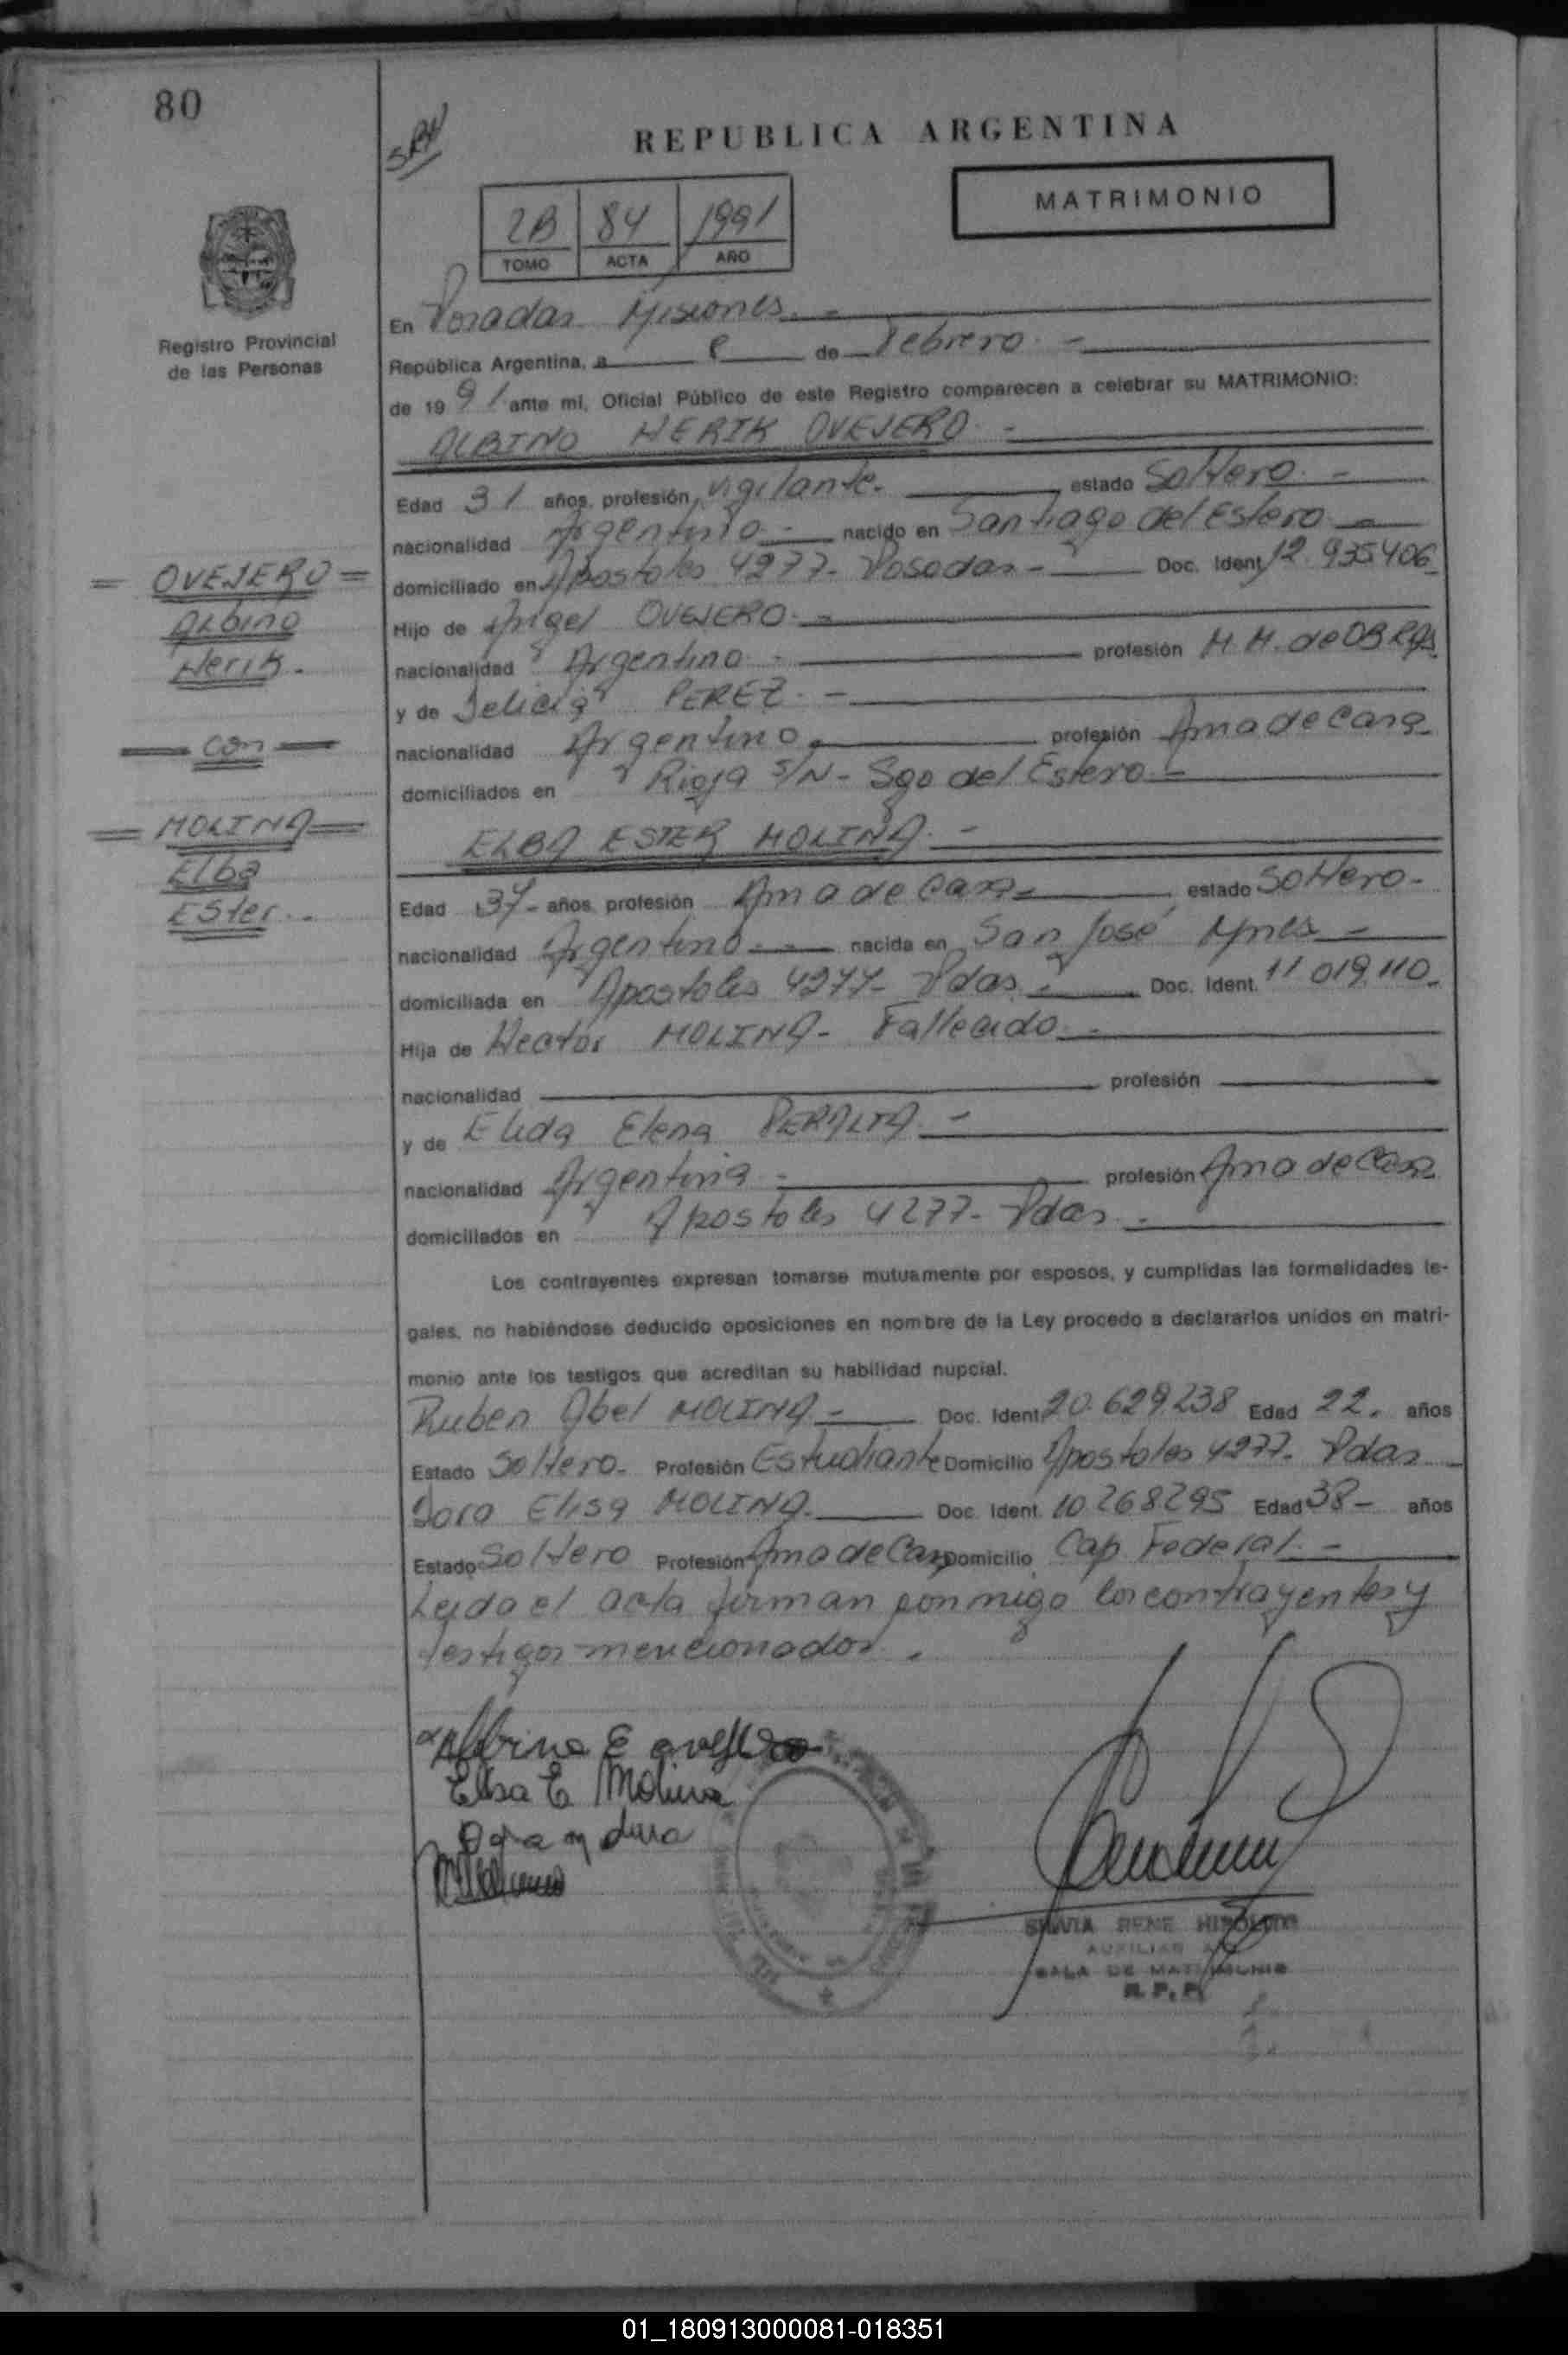 80
REPUBLICA ARGENTINA
2B 84 1991
TOMO ACTA AÑO
MATRIMONIO
Registro Provincial
de las Personas
En Posadas Misiones.-
República Argentina, a de Febrero.-
de 19 91 ante mi, Oficial Público de este Registro comparecen a celebrar su MATRIMONIO:
ALBINO HERIK OVEJERO.-
Edad 31 años, profesión, vigilante. estado Soltero.-
nacionalidad Argentino.- nacido en Santiago del Estero.-
domiciliado en Apostoles 4277- Posadas- Doc. Ident. 12.935406
Hijo de Angel OVEJERO.-
nacionalidad Argentino- profesión M.M. de OBRAS
y de Delicia PEREZ.-
nacionalidad Argentino profesión Ama de Casa-
domiciliados en Rioja S/N- Sgo del Estero-
= OVEJERO =
Albino
Herik.
con
= MOLINA =
Elba
Ester.-
ELBA ESTER MOLINA.-
Edad 37- años, profesión Ama de Casa- estado Soltero-
nacionalidad Argentino.- nacida en San José Mnes-
domiciliada en Apostoles 4277- Pdas.- Doc. Ident. 11 019.110.
Hija de Hector MOLINA- Fallecido.-
nacionalidad profesión
y de Elida Elena PERALTA.-
nacionalidad Argentina- profesión Ama de Casa
domiciliados en Apostoles 4277- Pdas.-
Los contrayentes expresan tomarse mutuamente por esposos, y cumplidas las formalidades le-
gales, no habiéndose deducido oposiciones en nombre de la Ley procedo a declararlos unidos en matri-
monio ante los testigos que acreditan su habilidad nupcial.
Ruben Abel MOLINA.- Doc. Ident. 20.629.238 Edad 22. años
Estado Soltero- Profesión Estudiante Domicilio Apostoles 4277- Pdas.-
Dora Elisa MOLINA. Doc. Ident. 10.268.295 Edad 38- años
Estado Soltero Profesión Ama de Casa Domicilio Cap. Federal.-
Leida el acta firman conmigo los contrayentes y
testigos mencionados.
Albino E Ovejero
Elba E Molina
SILVIA RENE HIPOLITO
AUXILIAR
SALA DE MATRIMONIO
R. P. P.
01_180913000081-018351